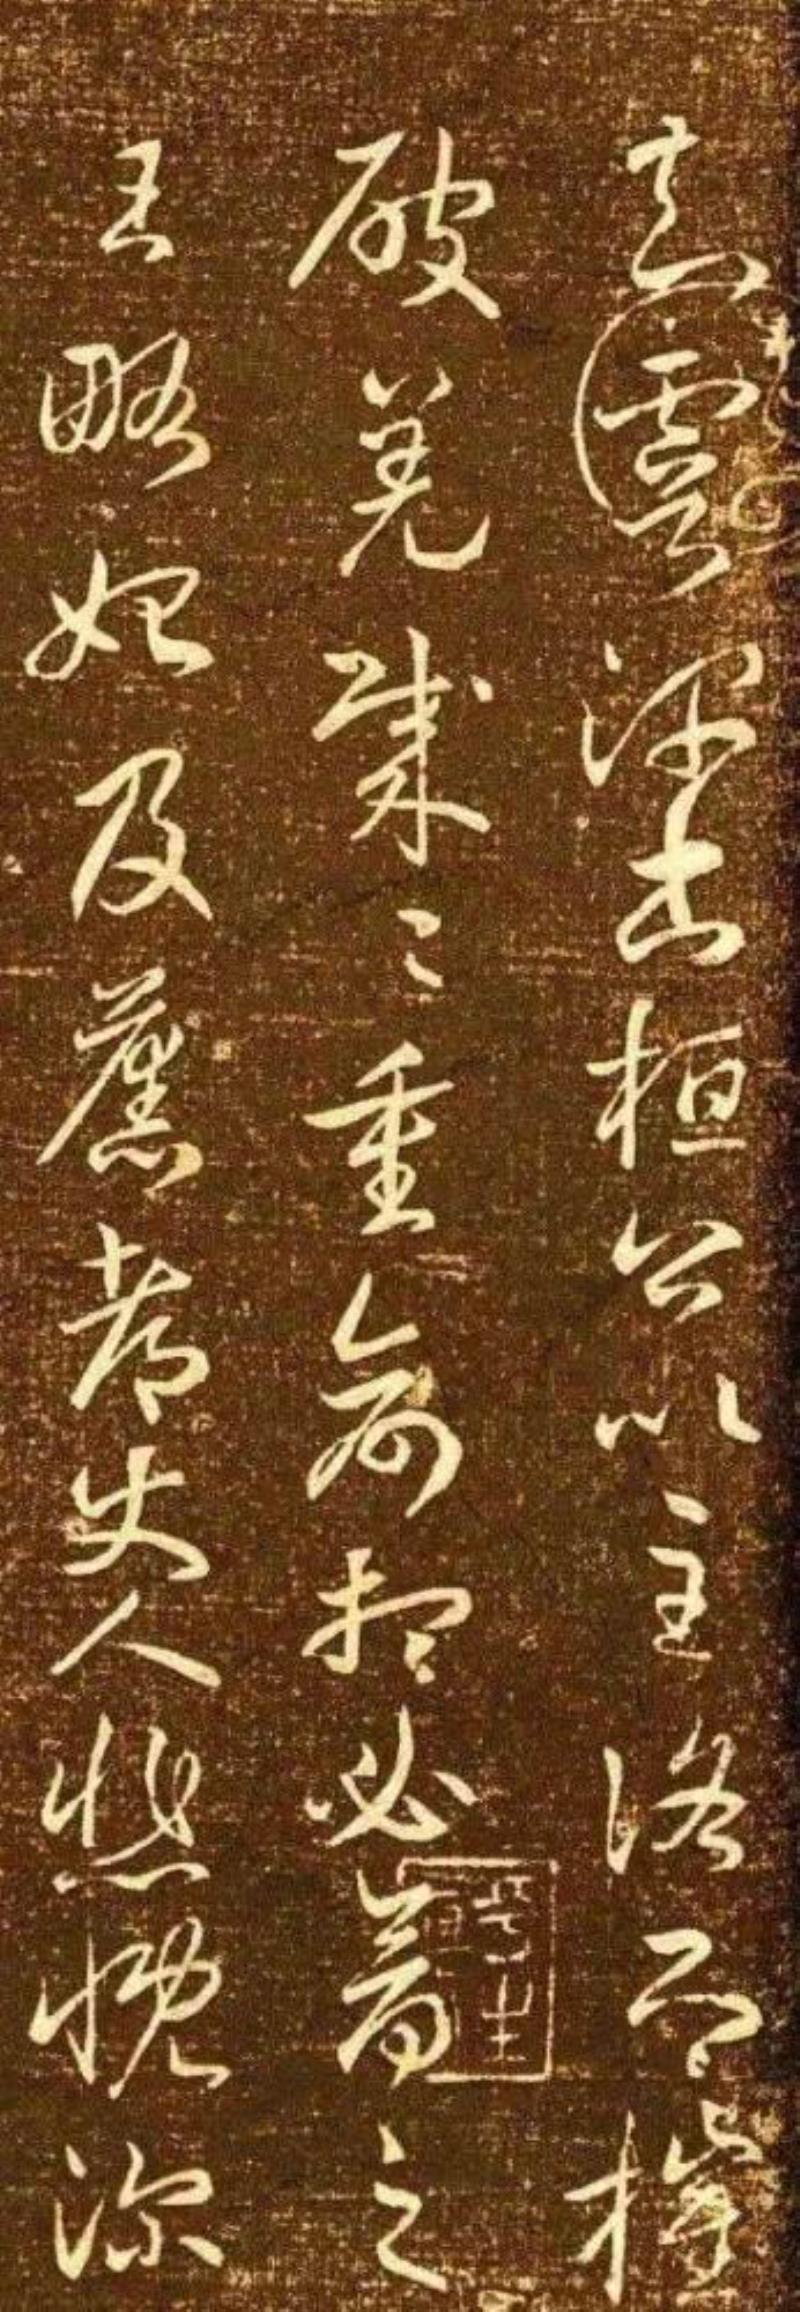 知虞帥書桓公以至洛即摧
破羌賊〻重命想必禽之
王略始及舊都使人悲慨深